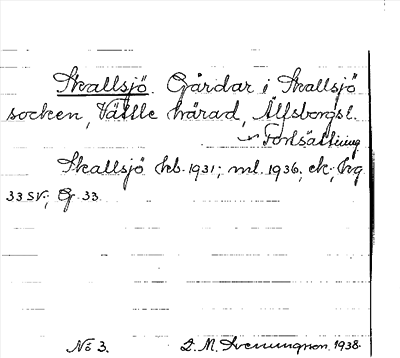 Skallsjö. Gårdar i Skallsjö
socken, Vättle härad, Älfsborgs l.
Fortsättning
Skallsjö hb. 1931; ml. 1936; ek.; hg
33 SV.; G. 33.
No 3. D. M. Svenungsson. 1938.